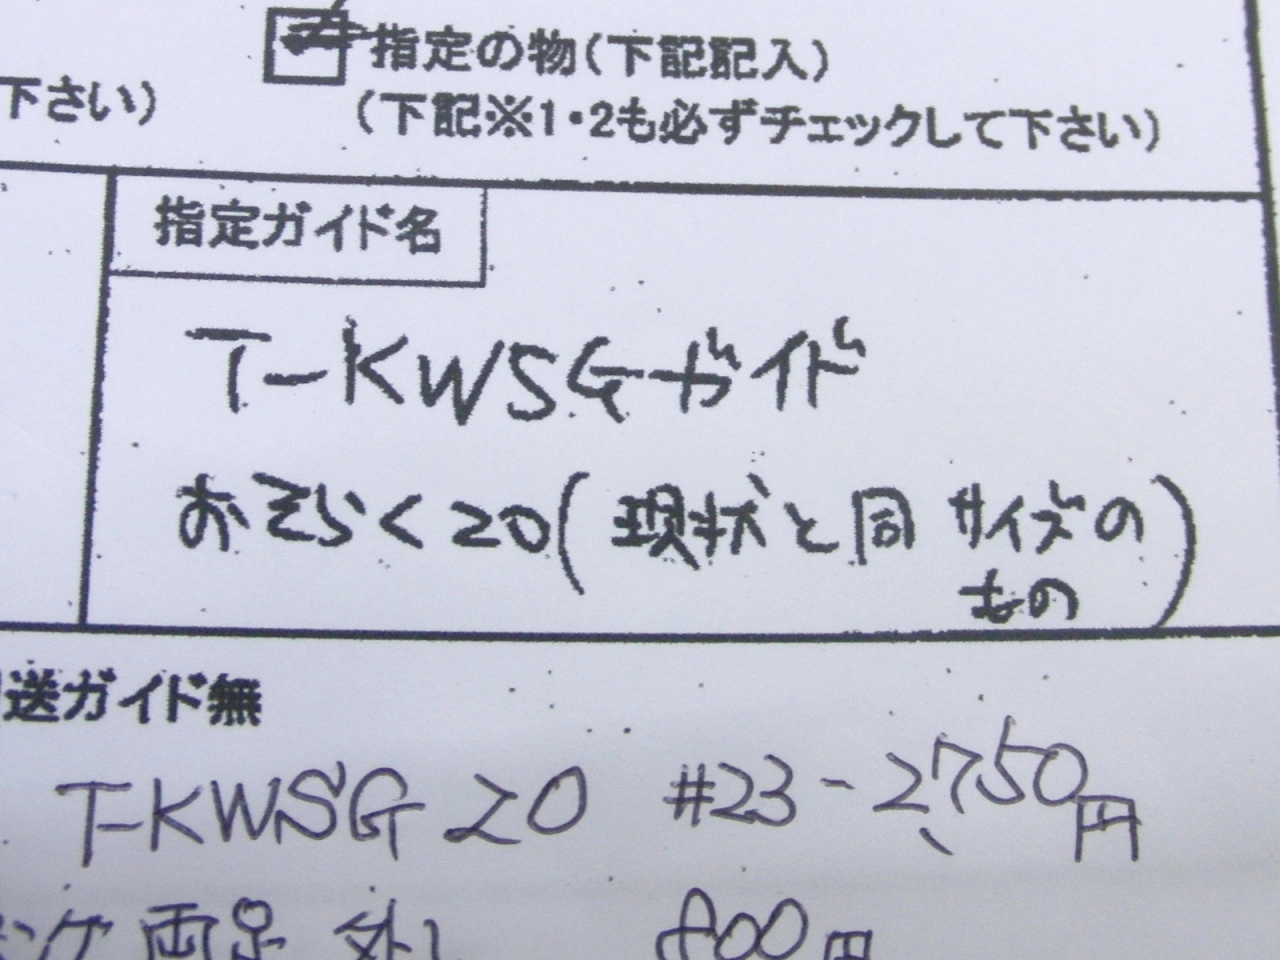 指定の物(下記記入)
下さい)
(下記※1・2も必ずチェックして下さい)
指定ガイド名
T-KWSGガイド
おそらく20(現状と同サイズの
もの)
送ガイド無
T-KWSG 20 #23- 2,750円
ング 両足 外し 800円